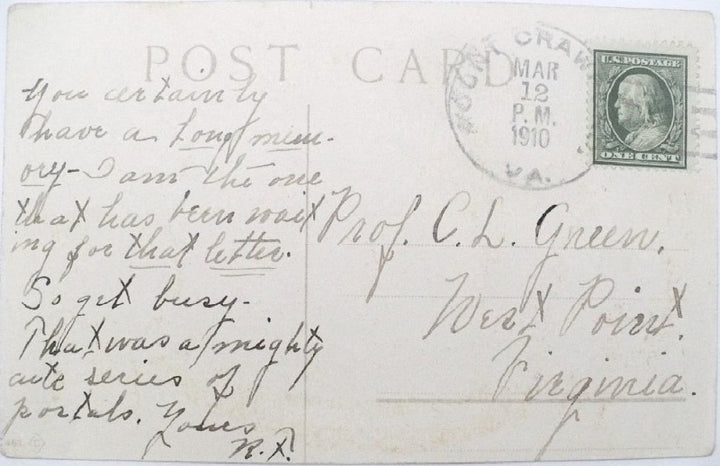 POST CARD
MOUNT CRAW
MAR
12
P.M.
1910
VA.
U.S. POSTAGE
ONE CENT
You certainly
have a long mem-
ory- I am the one
that has been wait
ing for that letter.
So get busy-
That was a mighty
cute series of
postals. Yours
R.T.
Prof. C. L. Green,
West Point,
Virginia.